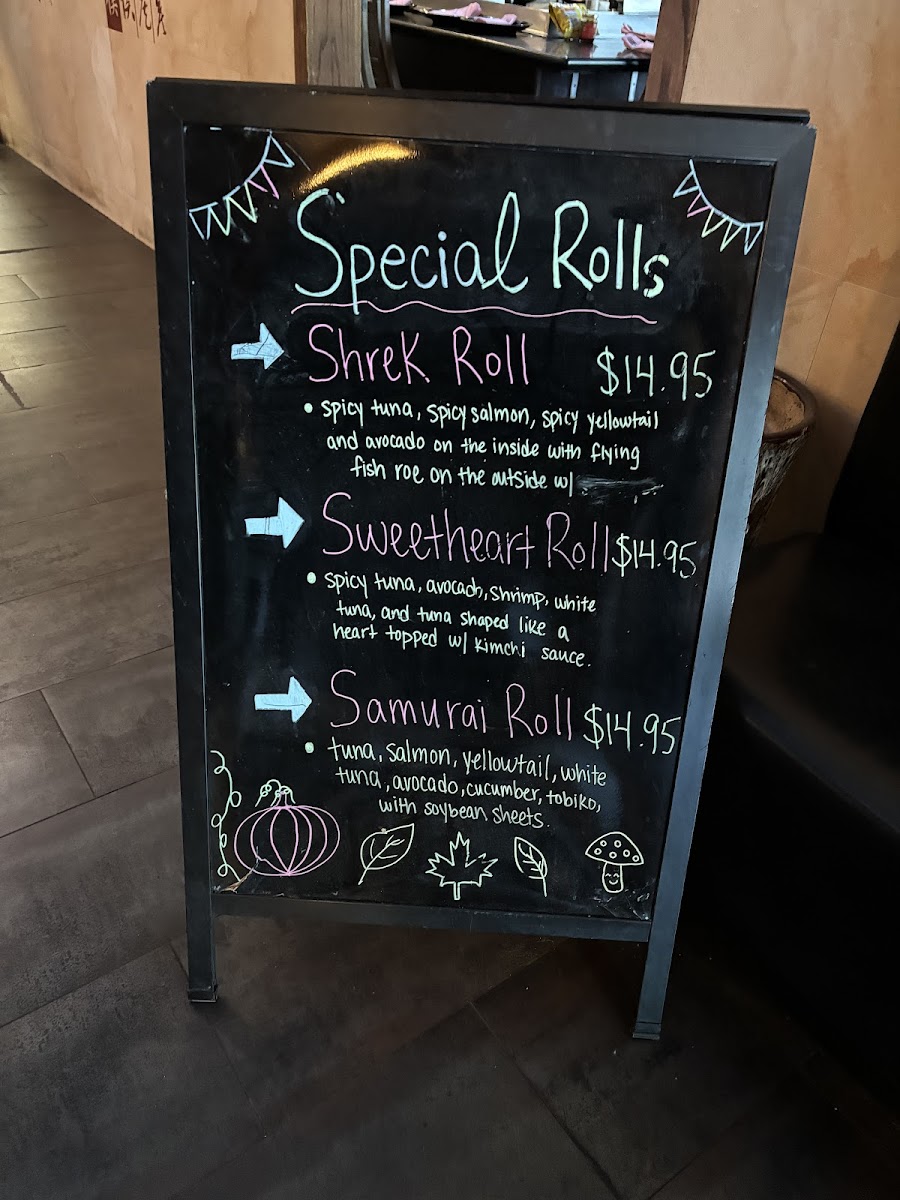 Special Rolls
Shrek Roll $14.95
• spicy tuna, spicy salmon, spicy yellowtail
and avocado on the inside with flying
fish roe on the outside w/
Sweetheart Roll $14.95
• spicy tuna, avocado, shrimp, white
tuna, and tuna shaped like a
heart topped w/ kimchi sauce.
Samurai Roll $14.95
• tuna, salmon, yellowtail, white
tuna, avocado, cucumber, tobiko,
with soybean sheets.